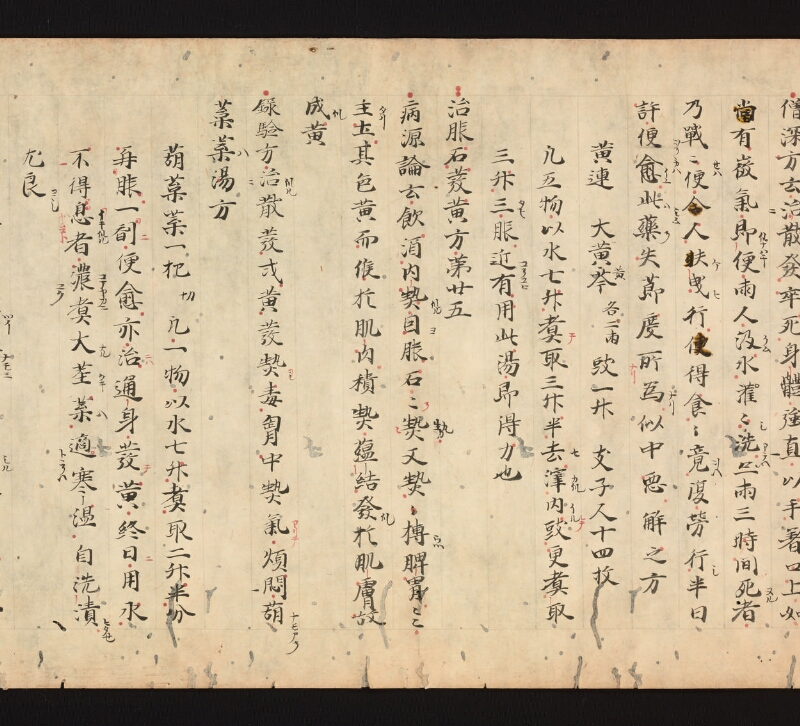 僧深方云治散發卒死身體強直以手著口上如
當有微氣即便兩人汲水灌〻洗至兩三時間死者
乃戰〻便令人扶曳行便得食〻竟復勞行半日
許便愈此藥失節度所為似中惡解之方
黃連 大黃芩 各二兩 豉一升 支子人十四枚
凡五物以水七升煮取三升半去滓內豉更煮取
三升三服近有用此湯即得力也
治服石發黃方第廿五
病源論云飲酒內熱因服石〻熱又熱〻搏脾胃〻
主土其色黃而候於肌肉積熱蘊結發於肌膚故
成黃
錄驗方治散發或黃發熱毒胃中熱氣煩悶葫
菜菜湯方
葫菜菜一把 切 凡一物以水七升煮取二升半分
再服一劑便愈亦治通身發黃終日用水
不得息者濃煮大莖菜適寒溫自洗漬
尤良